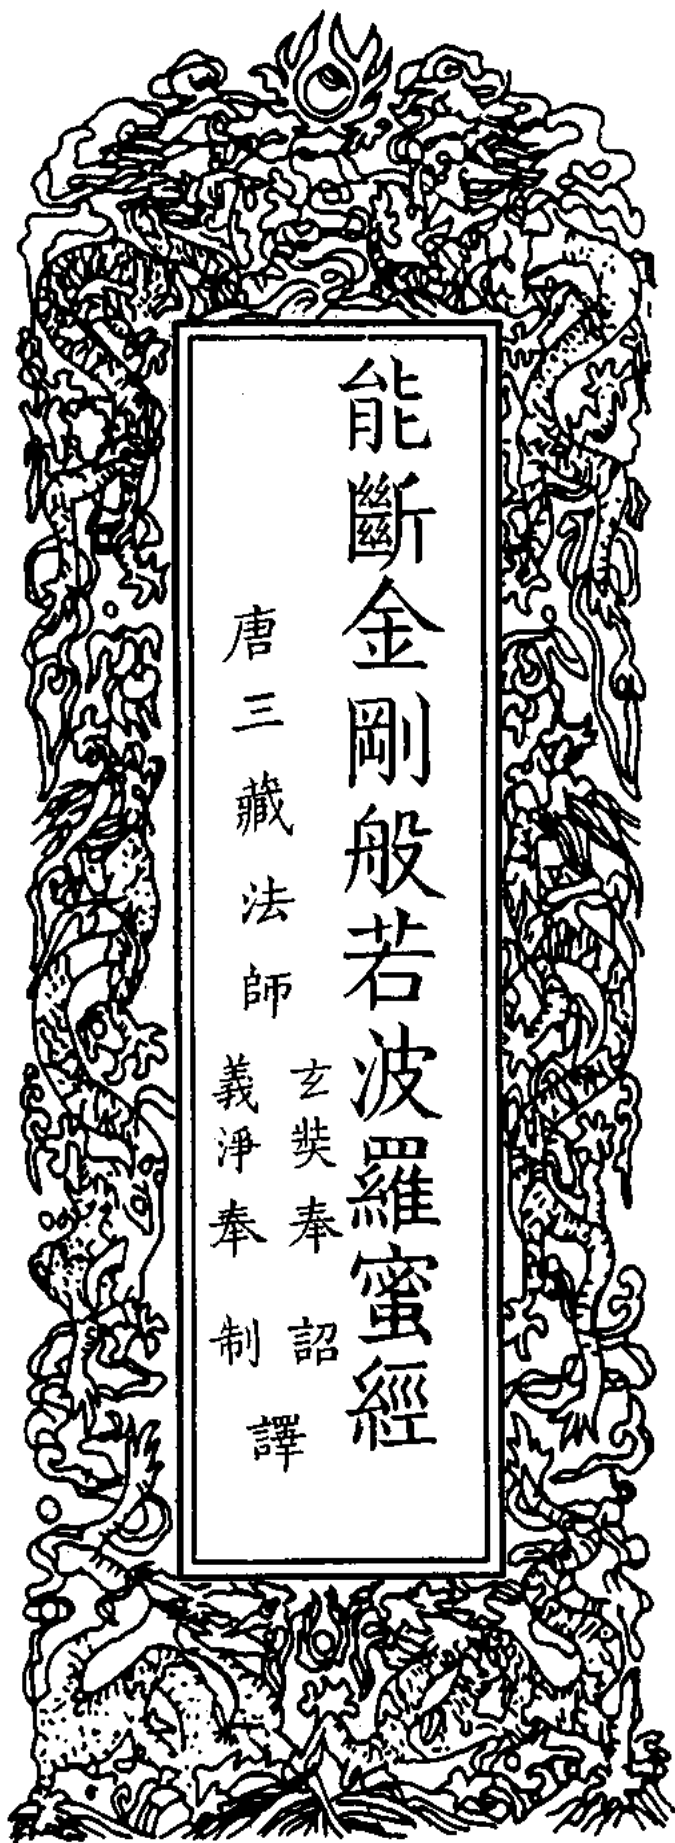 能斷金剛般若波羅蜜經
唐三藏法師
玄奘奉詔
義淨奉制
譯